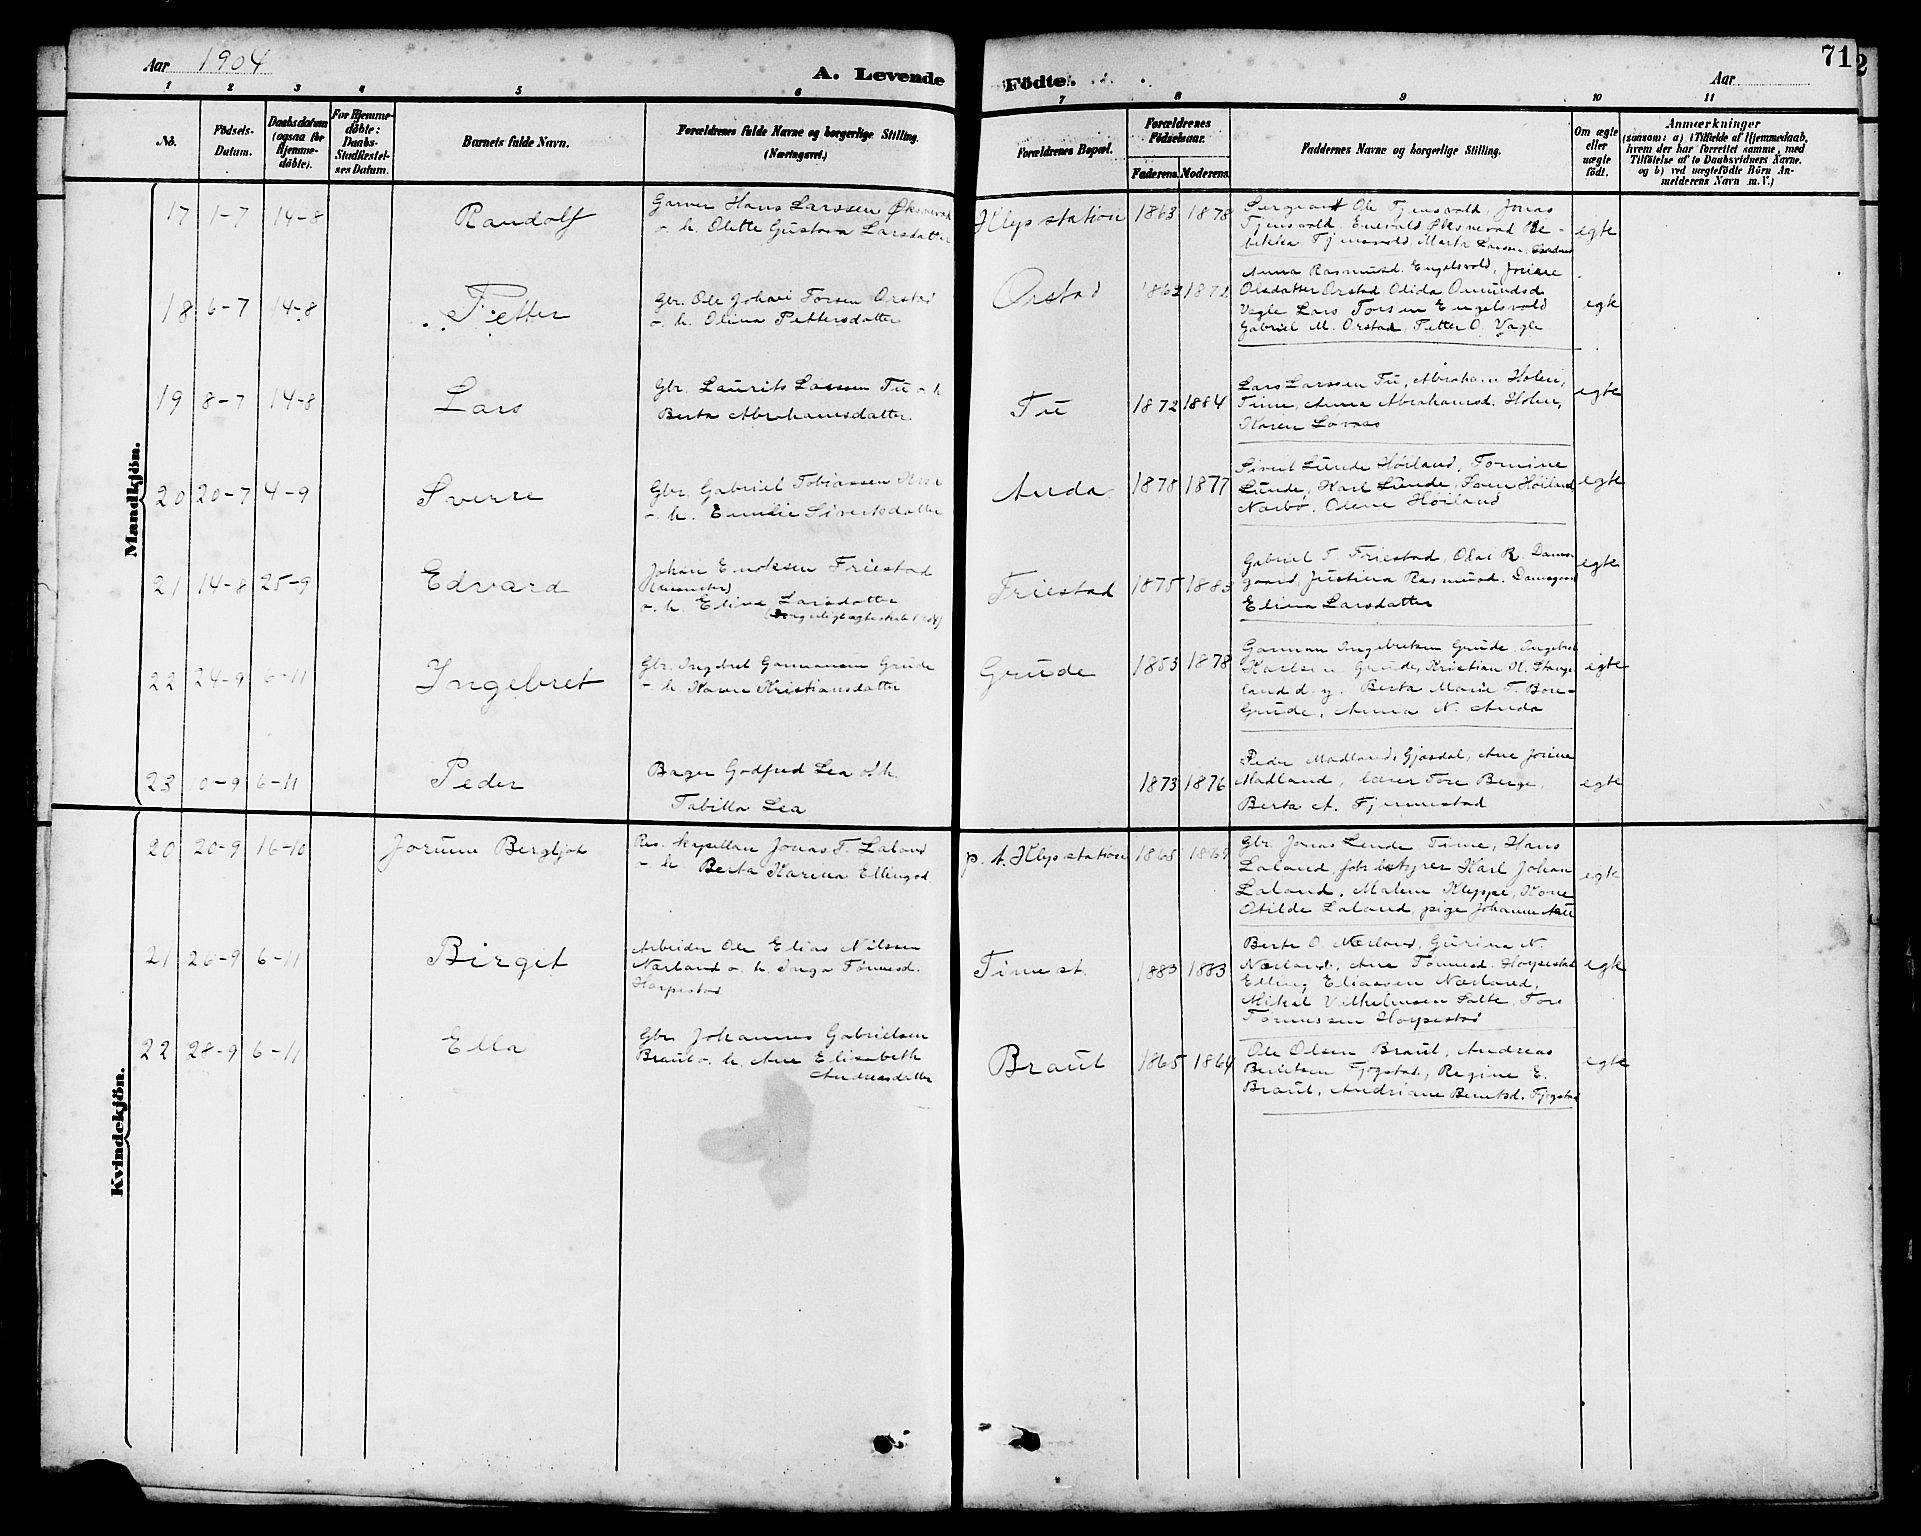 Aar 1904
A. Levende
Födte.
Aar
71
2
1 2 3 4 5 6 7 8 9 10 11
No.
Födsels-
Datum.
Daabsdatum
(ogsaa for
Hjemme-
döbte).
For Hjemme-
döbte:
Daabs-
Stadfæstel-
ses Datum.
Barnets fulde Navn.
Forældrenes fulde Navne og borgerlige Stilling.
(Næringsvei.)
Forældrenes Bopæl.
Forældrenes
Födselsaar.
Faderens. Moderens.
Faddernes Navne og borgerlige Stilling.
Om ægte
eller
uægte
födt.
Anmærkninger
(saasom: a) i Tilfælde af Hjemmedaab,
hvem der har forrettet samme, med
Tilföielse af to Daabsvidners Navne.
og b) ved uægtefödte Börn An-
melderens Navn m. V.)
Mandkjön.
17 1-7 14-8 Randolf
Garver Hans Larssen Øksnevad
o. h. Olette Gustava Larsdatter
Klep station 1863 1878
Sergeant Ole Tjensvold, Jonas
Tjensvold, Enevald Øksnevad Re-
bekka Tjensvold, Marta Larsen
egte
18 6-7 14-8 Petter
Gbr. Ole Johan Torsen Orstad
o. h. Olina Pettersdatter
Orstad 1862 1872
Anna Rasmusd. Engelsvold, Jorine
Olsdatter Orstad Olida Omundsd
Vagle Lars Torsen Engelsvold
Gabriel M. Orstad, Petter O. Vagle
egte
19 8-7 14-8 Lars
Gbr. Laurits Larssen Tu o. h
Berta Abrahamsdatter
Tu 1872 1884
Lars Larssen Tu, Abraham Holen,
Time, Anna Abrahamsd. Holen,
Karen Lovaas
egte
20 20-7 4-9 Sverre
Gbr. Gabriel Tobiassen
o. h. Emilie Sivertsdatter
Anda 1878 1877
Sivert Lunde Høiland, Tomine
Lunde, Karl Lunde, Høiland,
Narbø, Olene Høiland
egte
21 14-8 25-9 Edvard
Johan Enoksen Friestad
o. h. Elina Larsdatter
Friestad 1875 1883
Gabriel T. Friestad, Olai R. Dams-
gaard, Justina Rasmusd. Damsgaard
Elina Larsdatter
egte
22 24-9 6-11 Ingebret
Gbr. Ingebret Gaumansen Grude
o. h. Karen Kristiansdatter
Grude 1853 1878
Gauman Ingebretsen Grude, Ingebret
Karlsen Grude, Kristian H. Stange-
land d. y. Berta Marie T. Bore-
Grude, Anna N. Anda
egte
23 0-9 6-11 Peder
Bager Godfred Lea o. h.
Tabitta Lea
1873 1876
Peder Madland, Gjesdal, Ane Jorine
Madland, lærer Tore Berge,
Berta A. Fjermestad
egte
Kvindekjön.
20 20-9 16-10 Jorunn Bergljot
Res. kapellan Jonas F. Laland
o. h Berta Karina Ellingsd.
p. t. Klep station 1865 1869
Gbr. Jonas Lende Time, Hans
Laland, fabr.bestyrer Karl Johan
Laland, Malene Kleppe, Kone
Otilde Laland, pige Johanne
egte
21 26-9 6-11 Birgit
Arbeider Ole Elias Nilssen
Nærland o. h. Inga Tønnesd.
Horpestad
Time st. 1883 1883
Berte O. Nærland, Gurina N.
Nærland, Ane Tønnesd. Horpestad
Elling Eliassen Nærland,
Mikal Vilhelmsen Salte, Tore
Tønnessen Horpestad
egte
22 28-9 6-11 Ella
Gbr. Johannes Gabrielsen
Braut o. h. Ane Elisabeth
Andreasdatter
Braut 1865 1864
Ole Olsen Braut, Andreas
Berntsen Tjøgstad, Regine E.
Braut, Andriane Berntsd. Tjøgstad
egte